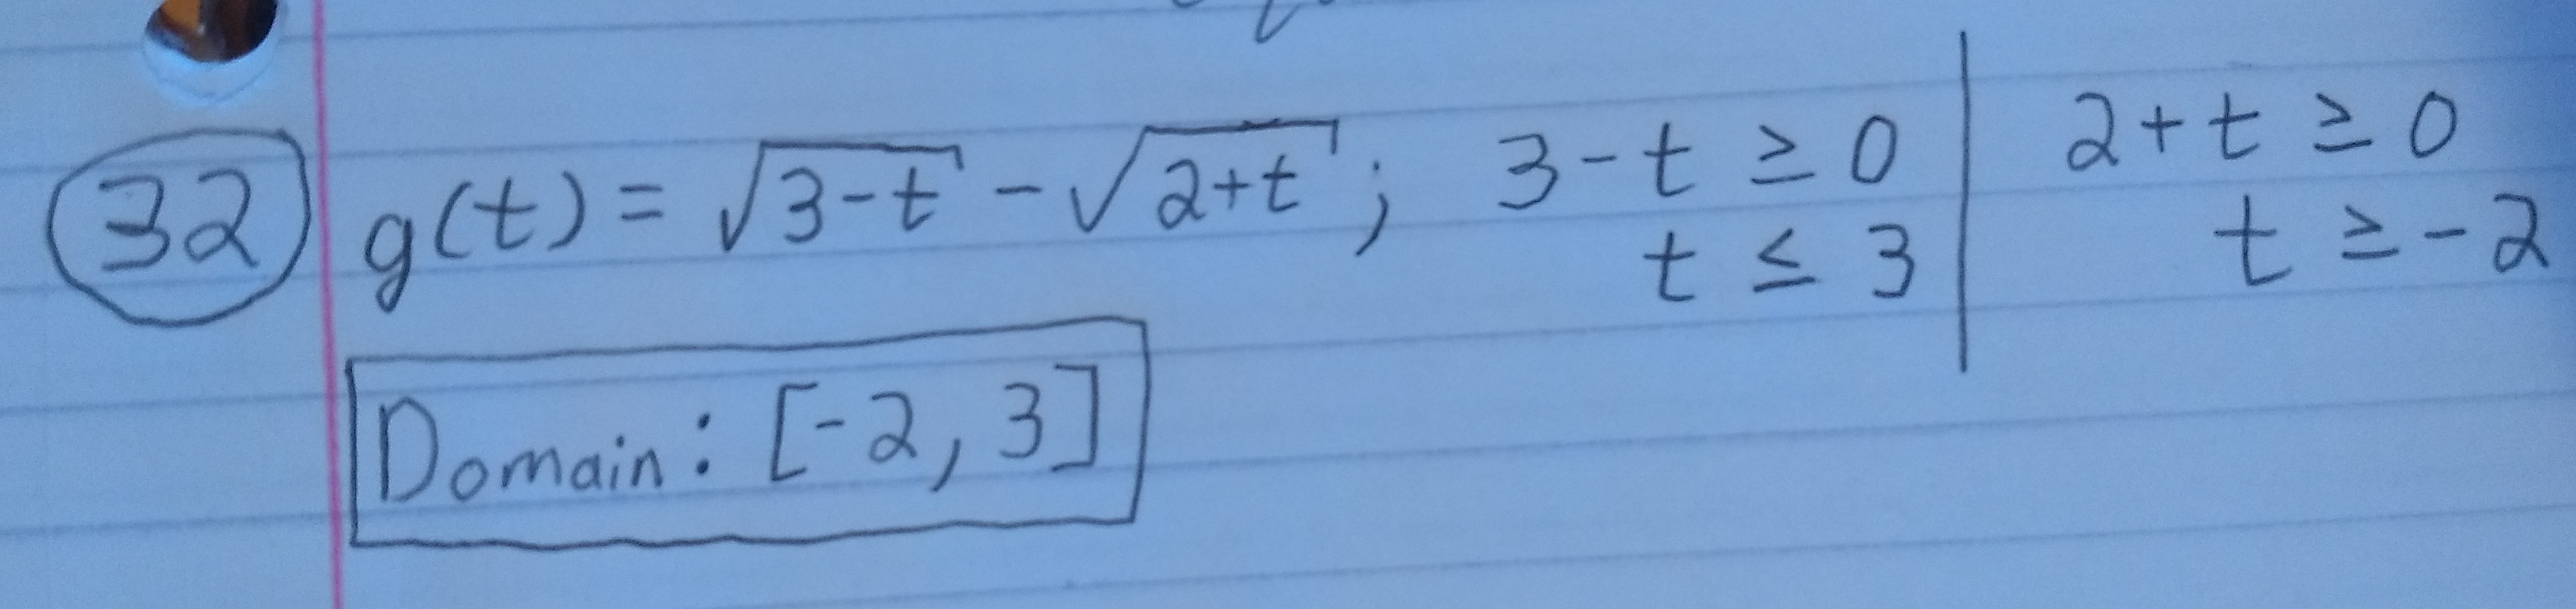 32 g(t) = √(3-t) - √(2+t) ; 3-t ≥ 0 | 2+t ≥ 0
t ≤ 3 | t ≥ -2
Domain: [-2, 3]